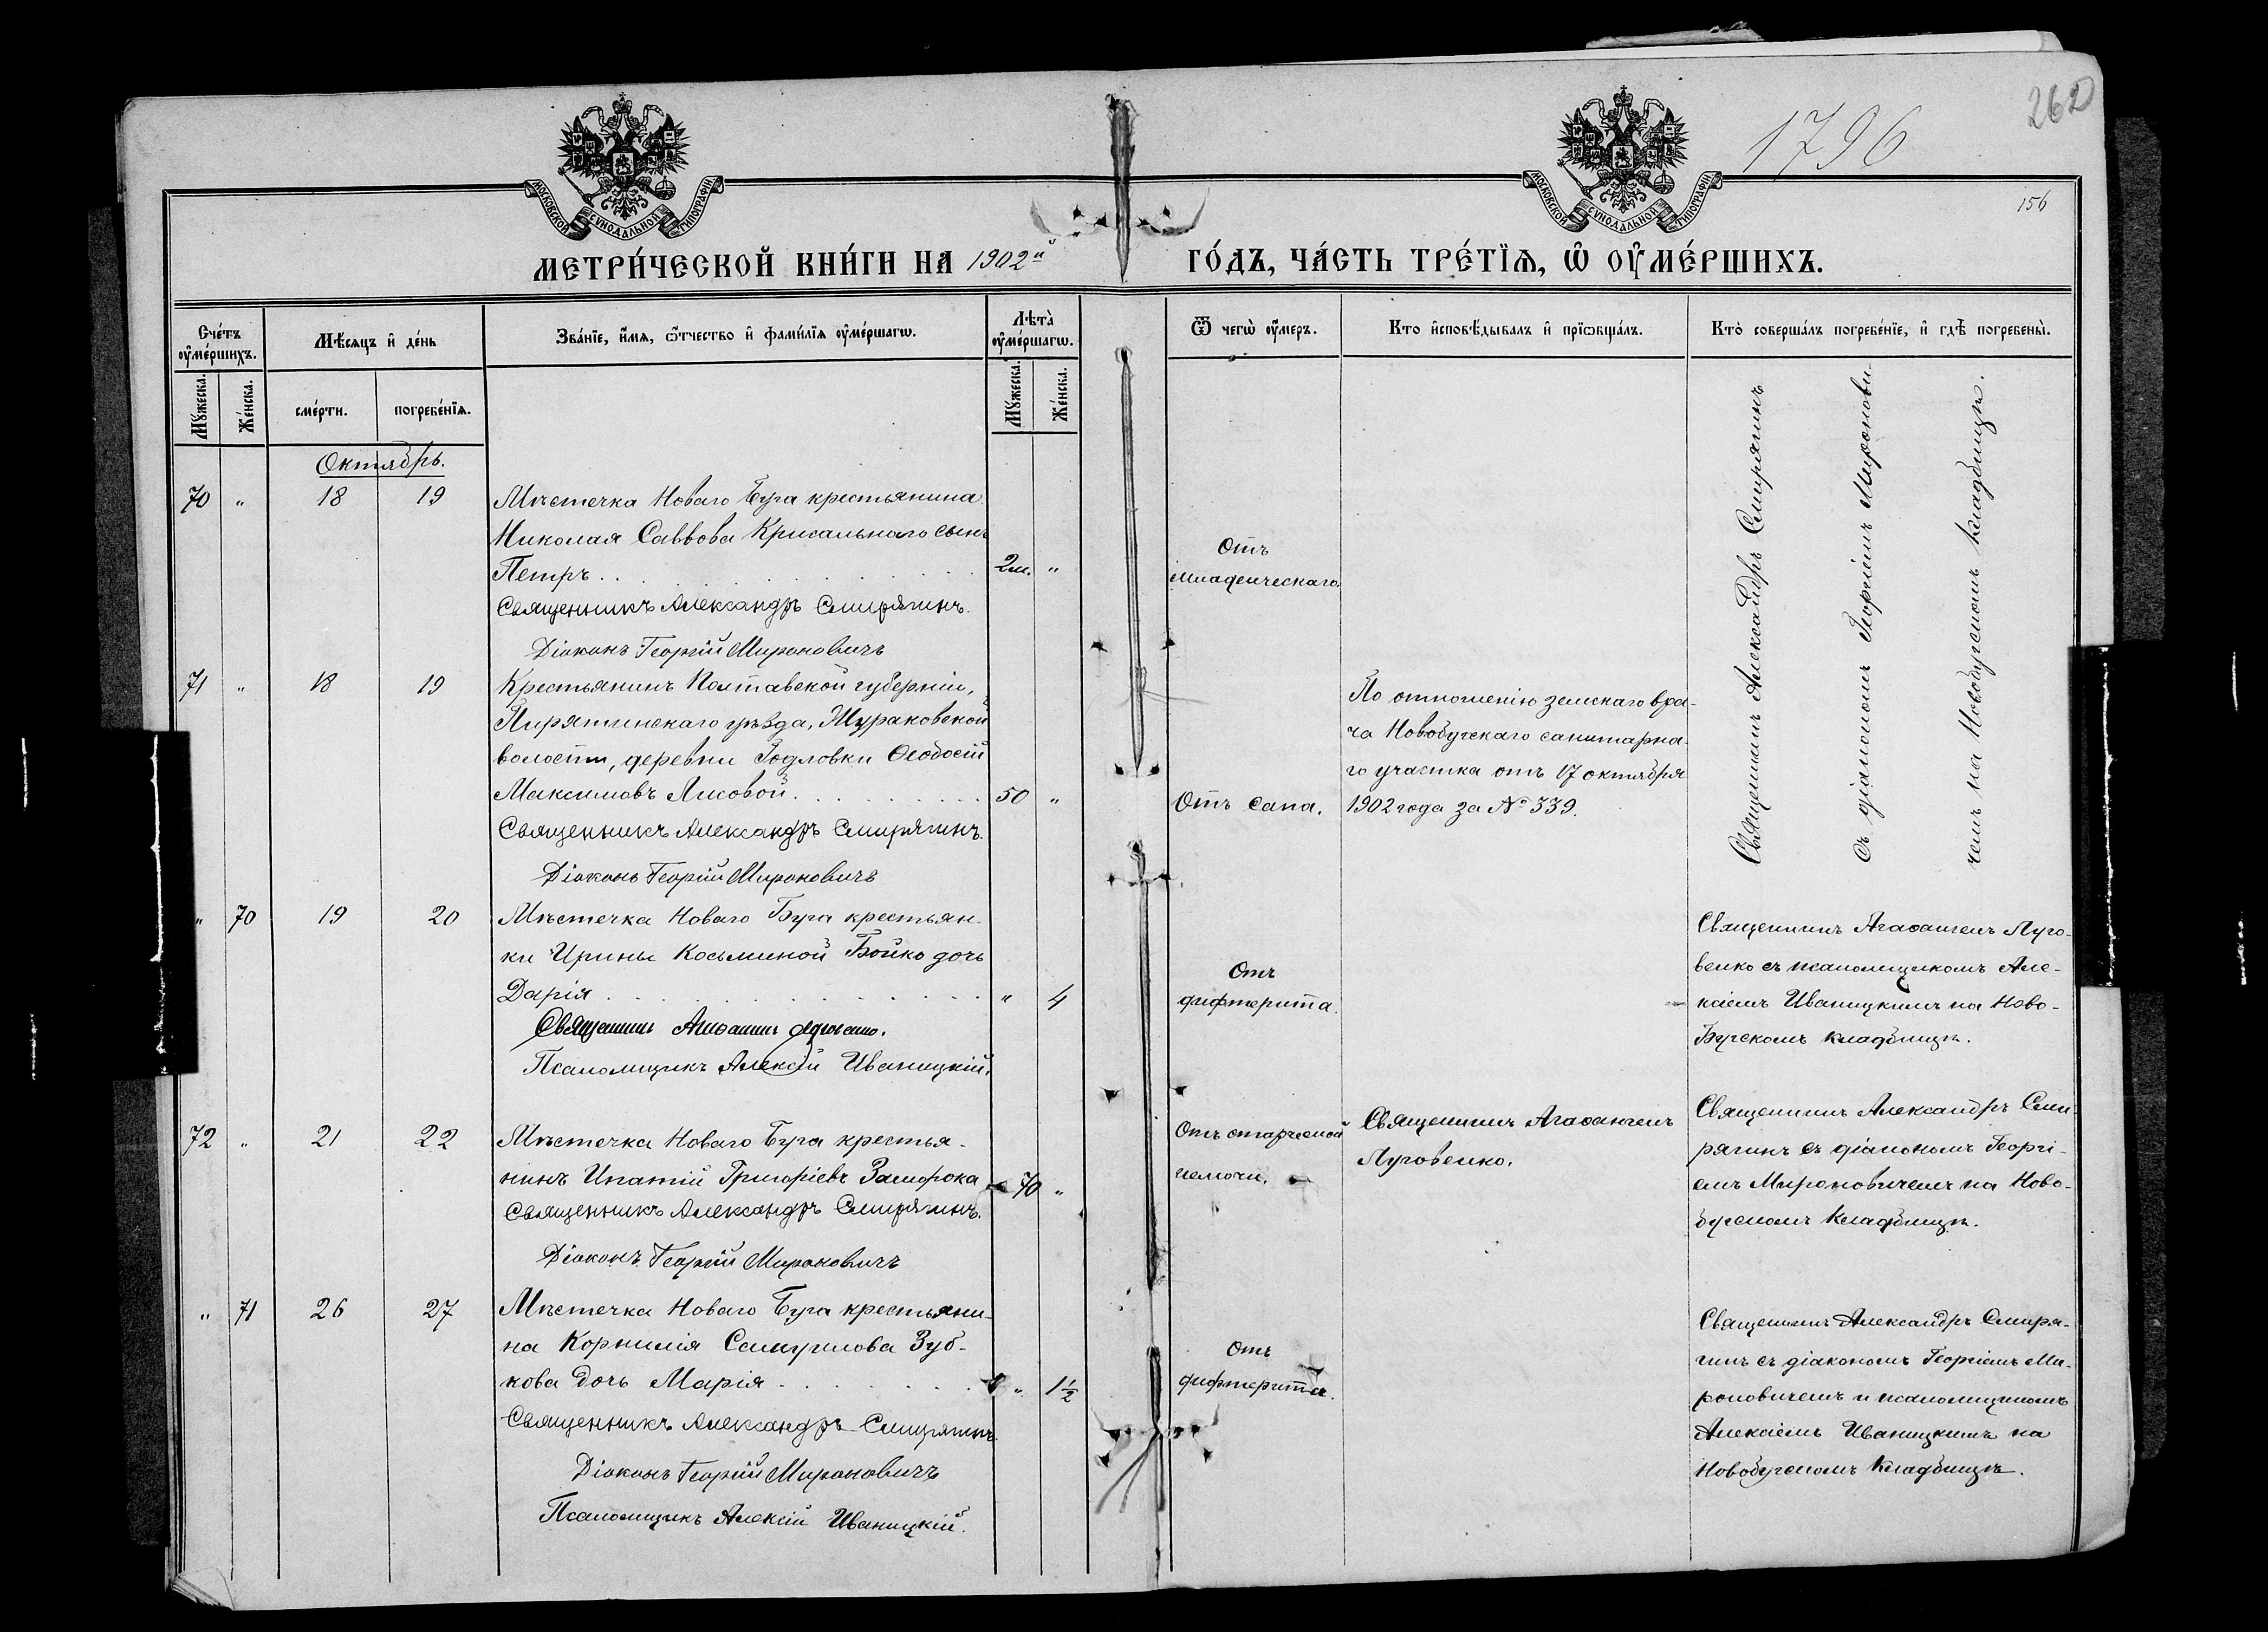 262
1796
156
МОСКОВСКОЙ СѴНОДАЛЬНОЙ ТИПОГРАФІИ
МОСКОВСКОЙ СѴНОДАЛЬНОЙ ТИПОГРАФІИ
МЕТРИ́ЧЕСКОЙ КНИ́ГИ НА 1902й ГО́ДЪ, ЧА́СТЬ ТРЕ́ТЇѦ, Ѽ ОУ҆МЕ́РШИХЪ.
Сче́тъ оу҆ме́ршихъ.
Мѣ́сѧцъ и҆ де́нь
Зва́нїе, и҆́мѧ, ѻ҆́тчество и҆ фами́лїѧ оу҆ме́ршагѡ.
Лѣта̀ оу҆ме́ршагѡ.
Ѿ чегѡ̀ оу҆́меръ.
Кто̀ и҆сповѣ́дывалъ и҆ прїѡбща́лъ.
Кто̀ соверша́лъ погребе́нїе, и҆ гдѣ̀ погребены̀.
Мꙋ́жеска.
Же́нска.
сме́рти.
погребе́нїѧ.
Мꙋ́жеска.
Же́нска.
Октябрь.
70 " 18 19 Мѣстечка Новаго Буга крестьянина
Николая Саввова Крисальнаго сынъ
Петръ . . . 2м. "
Священникъ Александръ Смирягинъ.
Діаконъ Георгій Мироновичъ
Отъ
младенческаго.
Священникъ Александръ Смирягинъ
съ діакономъ Георгіемъ Миронови-
чемъ на Новобугскомъ кладбищѣ.
71 " 18 19 Крестьянинъ Полтавской губерніи,
Пирятинскаго уѣзда, Жураковской
волости, деревни
Максимовъ Лисовой . . . 50 "
Священникъ Александръ Смирягинъ.
Діаконъ Георгій Мироновичъ
Отъ сапа.
По отношенію земскаго вра-
ча Новобугскаго санитарна-
го участка отъ 17 октября
1902 года за № 339.
" 70 19 20 Мѣстечка Новаго Буга крестьян-
ки Ирины Косьминой Бойко дочь
Дарія . . . " 4
Священникъ
Псаломщикъ Алексій Иваницкій.
Отъ
дифтерита.
Священникъ Агаѳангелъ Луго-
венко съ псаломщикомъ Але-
ксіемъ Иваницкимъ на Ново-
Бугскомъ кладбищѣ.
72 " 21 22 Мѣстечка Новаго Буга крестья-
нинъ Ипатій Григоріевъ Заморока 70 "
Священникъ Александръ Смирягинъ.
Діаконъ Георгій Мироновичъ
Отъ старческой
немочи.
Священникъ Агаѳангелъ
Луговенко.
Священникъ Александръ Сми-
рягинъ съ діакономъ Георгі-
емъ Мироновичемъ на Ново-
бугскомъ кладбищѣ.
" 71 26 27 Мѣстечка Новаго Буга крестьяни-
на Корнилія Самуилова Зуб-
кова дочь Марія . . . " 1½
Священникъ Александръ Смирягинъ
Діаконъ Георгій Мироновичъ
Псаломщикъ Алексій Иваницкій.
Отъ
дифтерита.
Священникъ Александръ Смиря-
гинъ съ діакономъ Георгіемъ Ми-
роновичемъ и псаломщикомъ
Алексіемъ Иваницкимъ на
Новобугскомъ кладбищѣ.